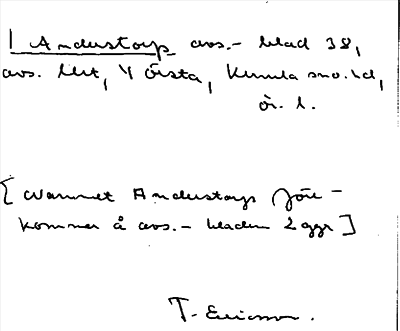 1 Anderstorp avs.- blad 38,
avs. Utt, Y Örsta, Kumla sn o. hd,
ör. l.
[Namnet Anderstorps före-
kommer å avs.- bladen 2 ggr]
T. Ericsson.